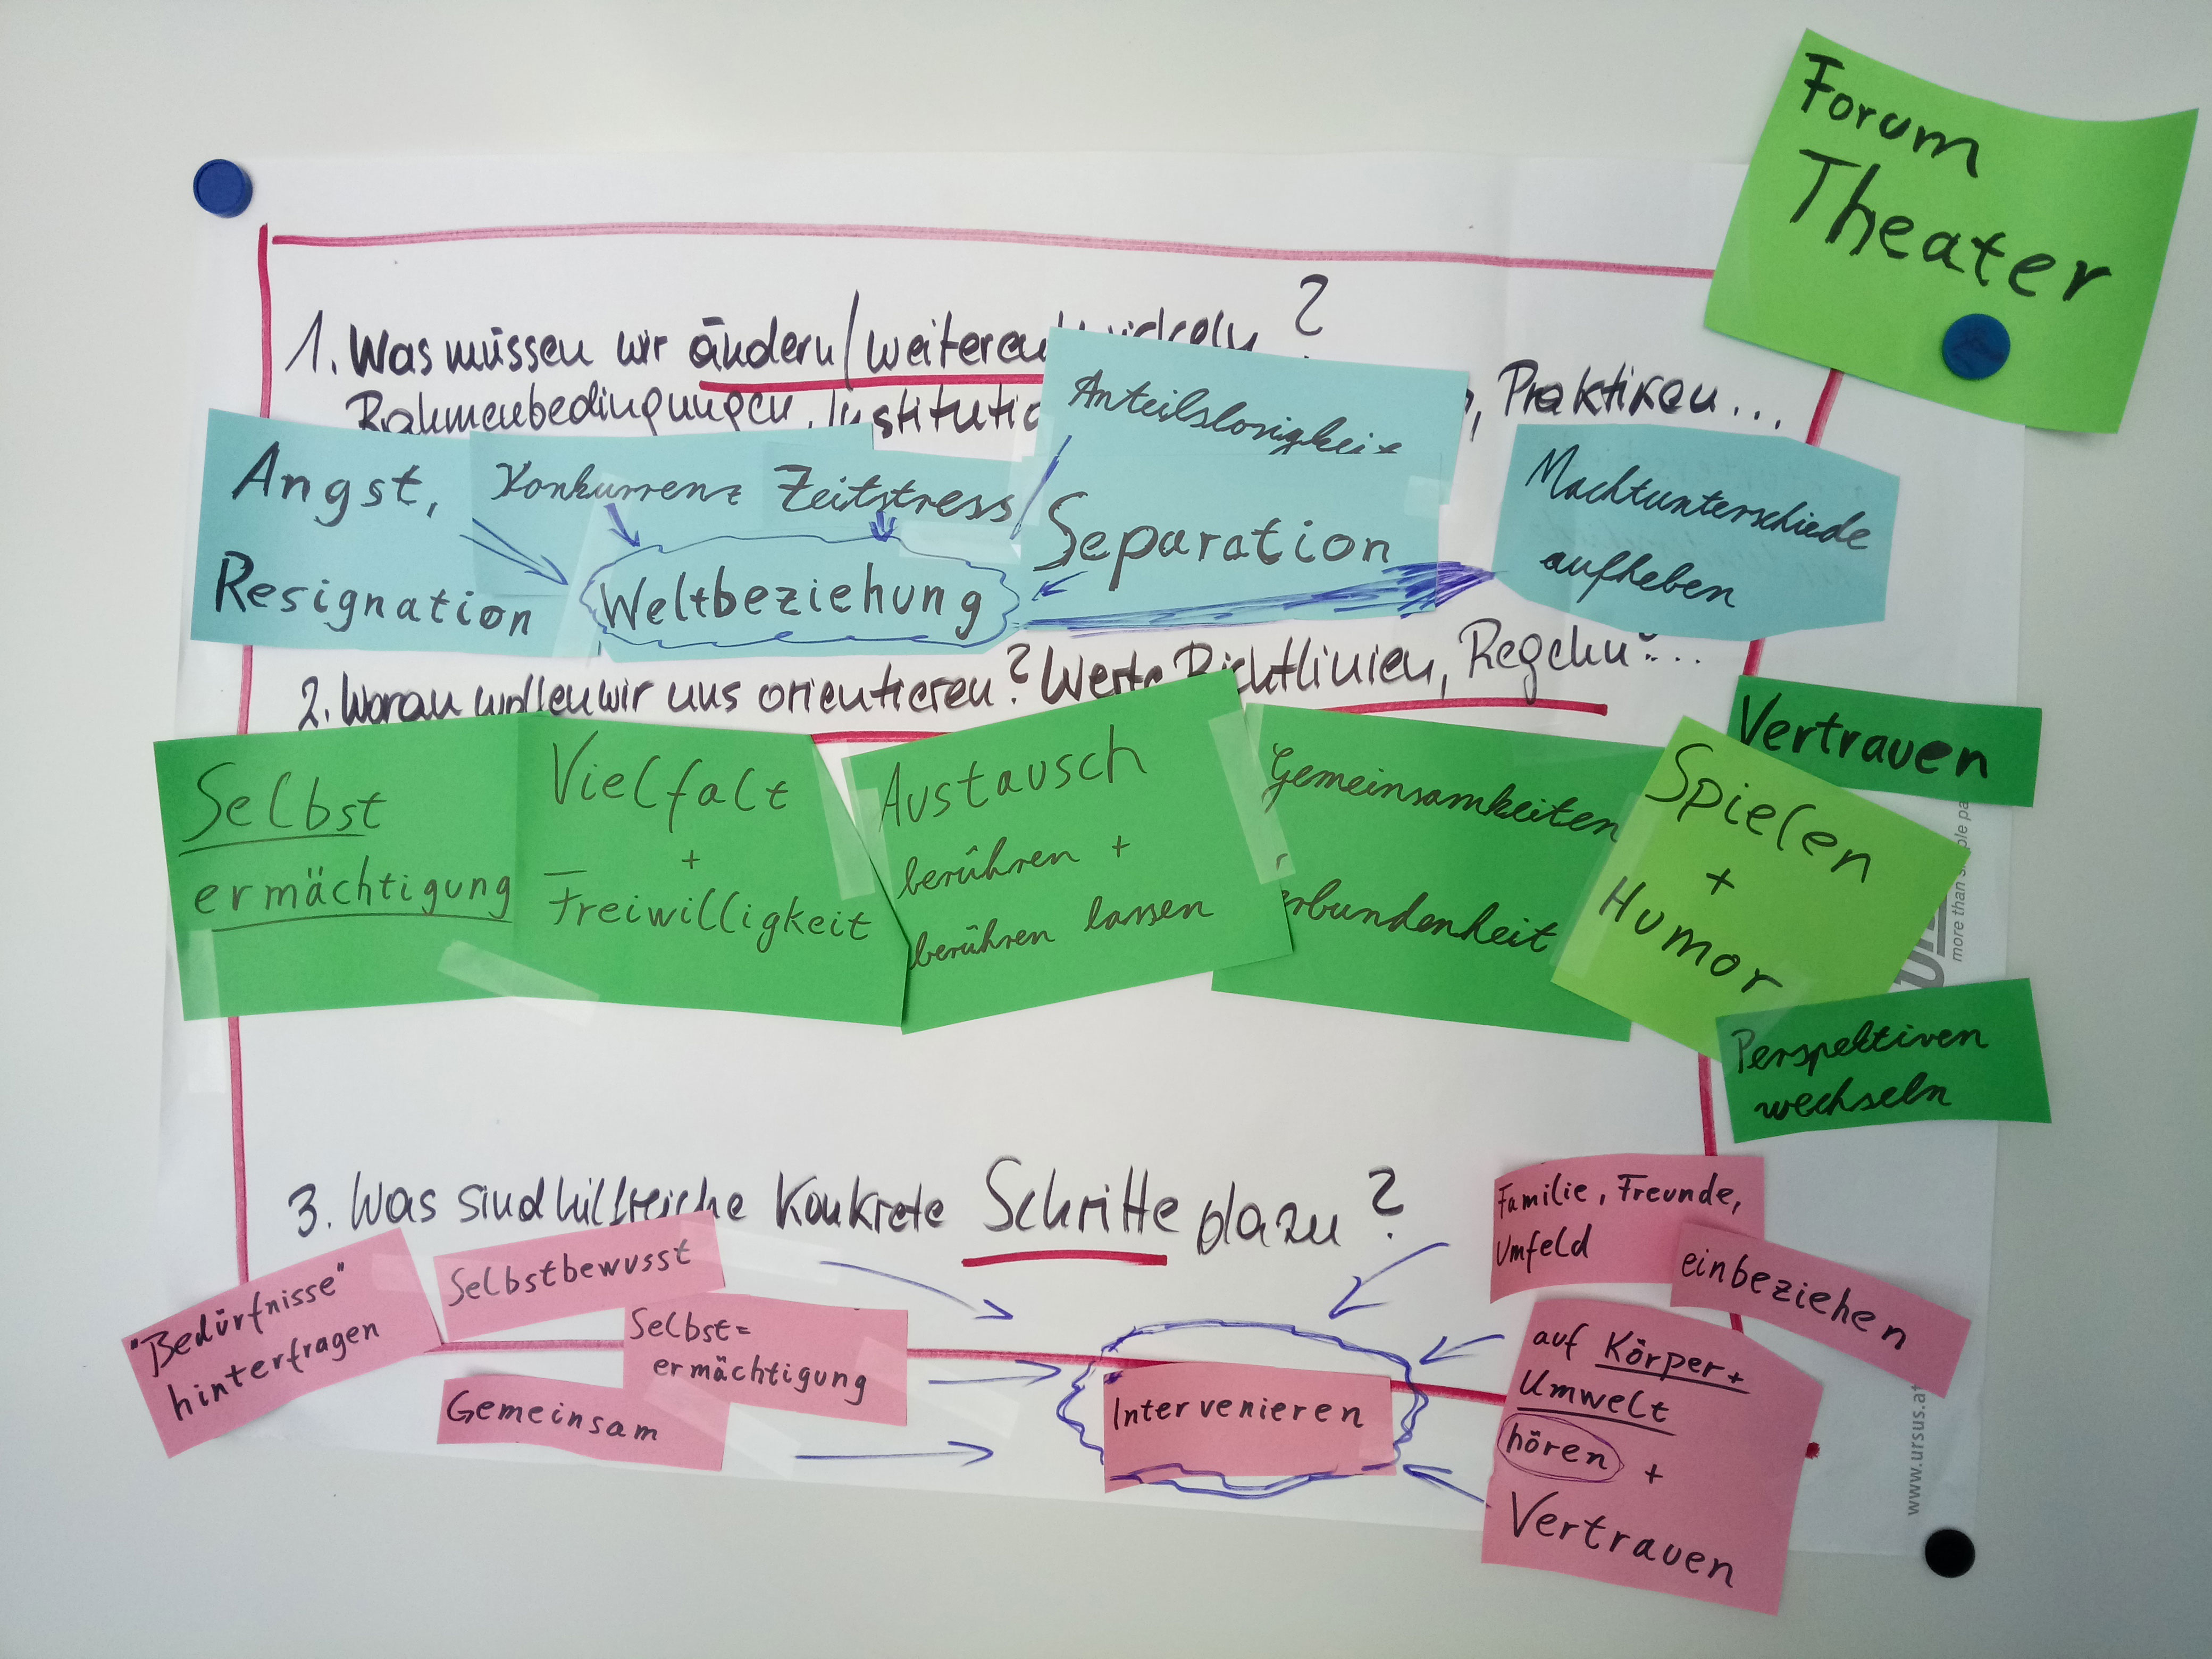 Forum
Theater
1. Was müssen wir ändern/weiterentwickeln?
Rahmenbedingungen, Institutio
, Praktiken...
Angst,
Resignation
Konkurrenz
Zeitstress
Anteilslosigkeit
Separation
Weltbeziehung
Machtunterschiede
aufheben
2. Woran wollen wir uns orientieren? Werte Richtlinien, Regeln?...
Selbst
ermächtigung
Vielfalt
+
Freiwilligkeit
Austausch
berühren +
berühren lassen
Gemeinsamkeiten
erbundenheit
Spielen
+
Humor
Vertrauen
Perspektiven
wechseln
more than simple pa
3. Was sind hilfreiche konkrete Schritte dazu?
"Bedürfnisse"
hinterfragen
Selbstbewusst
Selbst=
ermächtigung
Gemeinsam
Intervenieren
Familie, Freunde,
Umfeld
einbeziehen
auf Körper+
Umwelt
hören +
Vertrauen
www.ursus.at